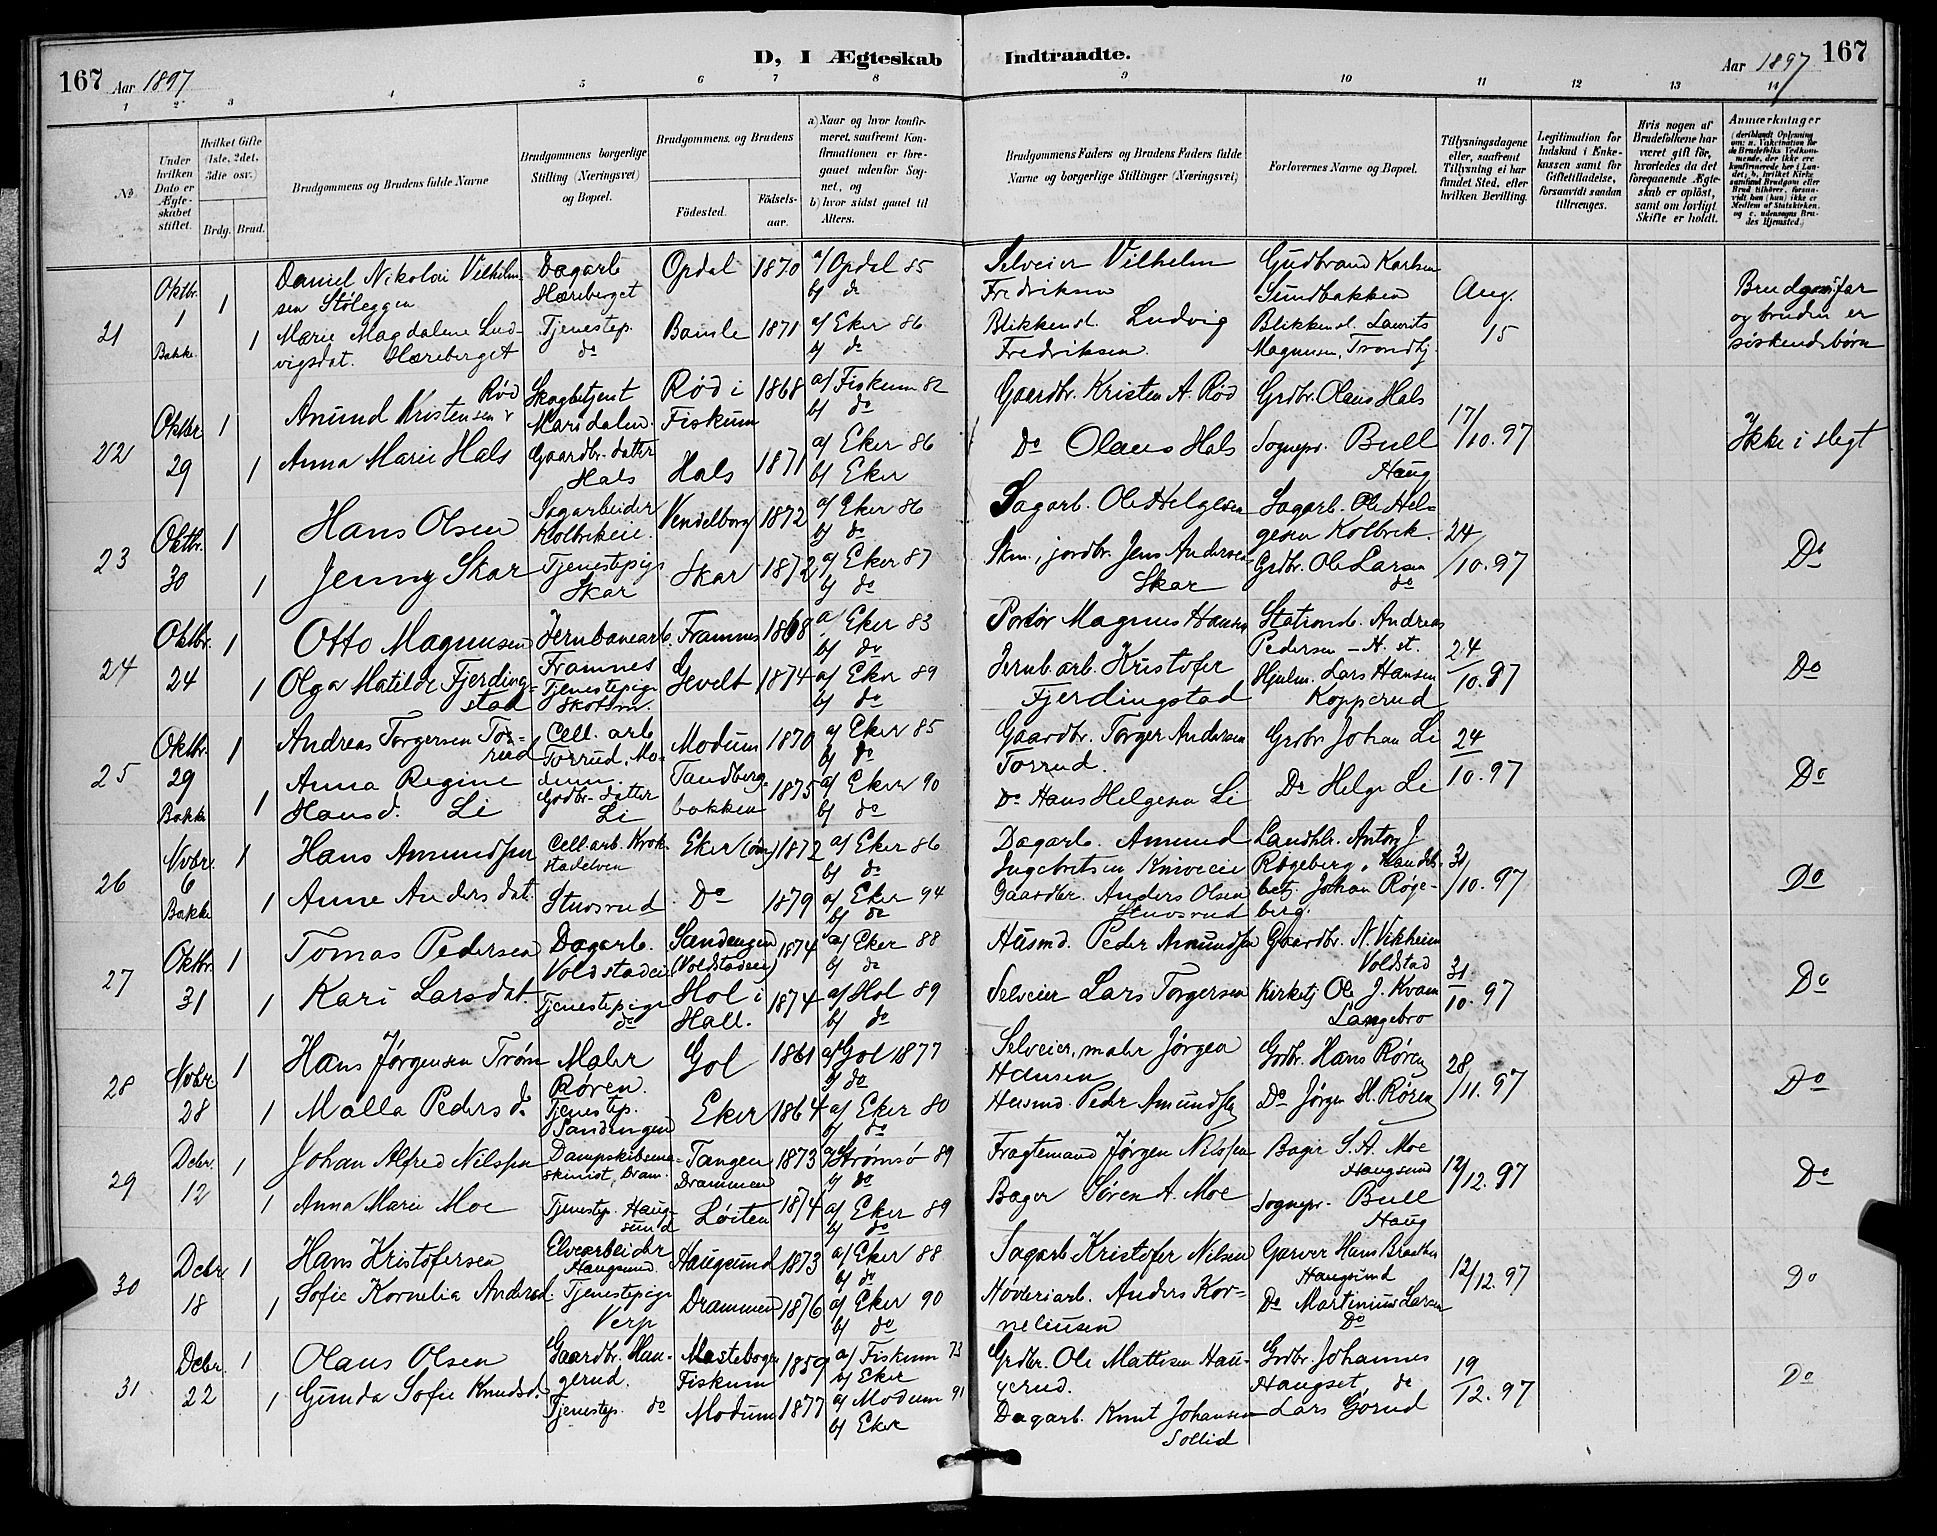 167 Aar 1897
D, I Ægteskab Indtraadte.
Aar 1897 167
1 2 3 4 5 6 7 8 9 10 11 12 13 14
No.
Under hvilken Dato er Ægteskabet stiftet.
Hvilket Gifte (1ste, 2det, 3die osv.)
Brdg. Brud.
Brudgommens og Brudens fulde Navne
Brudgommens borgerlige Stilling (Næringsvei) og Bopæl.
Brudgommens og Brudens
Fødested.
Fødselsaar.
a) Naar og hvor konfirmeret, saafremt Konfirmationen er foregaaet udenfor Sognet, og
b) hvor sidst gaaet til Alters.
Brudgommens Faders og Brudens Faders fulde Navne og borgerlige Stillinger (Næringsvei)
Forlovernes Navne og Bopæl.
Tillysningsdagene eller, saafremt Tillysning ei har fundet Sted, efter hvilken Bevilling.
Legitimation for Indskud i Enkekassen samt for Giftetilladelse, forsaavidt saadan tiltrænges.
Hvis nogen af Brudefolkene har været gift før, hvorledes da det foregaaende Ægteskab er opløst, samt om lovligt Skifte er holdt.
Anmærkninger
(deriblandt Oplysning om: a. Vakcination for de Brudefolks Vedkommende, der ikke ere konfirmerede her i Landet; b. hvilket Kirkesamfund Brudgom eller Brud tilhører, forsaavidt han (hun) ikke er Medlem af Statskirken, og c. udensogns Brudes Hjemsted.)
21 Oktbr. 1 Bakke. 1 Daniel Nikolai Vilhelmsen Støleggen Dagarb Hæreberget Opdal 1870 a/ Opdal 85 b/ do Selveier Vilhelm Fredriksen Gudbrand Karlsen Sundbakken Aug. 15 Brudgomsfar og bruden er siskendebørn
1 Marie Magdalene Ludvigsdat. Hæreberget Tjenestep. do Bamle 1871 a/ Eker 86 b/ do Blikkensl. Ludvig Fredriksen. Blikkensl. Laurits Magnusen, Trondhj.
22 Oktbr 29 1 Anund Kristensen Rød Skogbetjent Maridalen. Rød i Fiskum 1868 a/ Fiskum 82 b/ do Gaardbr. Kristen A. Rød Grdbr. Olaus Hals 17/10. 97 Ikke i slegt
1 Anna Marie Hals Gaardbr. datter Hals Hals 1871 a/ Eker 86 b/ Eker Do Olaus Hals Sognepr. Bull Haug
23 Oktbr. 30 1 Hans Olsen Sagarbeider Kolbrekeie. Vendelborg 1872 a/ Eker 86 b/ do Sagarb. Ole Helgesen Sagarb. Ole Helgesen Kolbrek. 24/10. 97 Do
1 Jenny Skar Tjenestepige Skar Skar 1872 a/ Eker 87 b/ do Skm. i jordbr. Jens Andersen Skar Grdbr. Ole Larsen do
24 Oktbr. 24 1 Otto Magnusen Jernbanearb. Framnes Framnes 1868 a/ Eker 83 b/ do Portør Magnus Hansen Stationsb. Andreas Pedersen - H. st. 24/10. 97 Do
1 Olga Matilde Fjerdingstad Tjenestepige Skotsm. Gevelt 1874 a/ Eker 89 b/ do Jernb arb. Kristofer Fjerdingstad Hjulm. Lars Hansen Kopperud
25 Oktbr. 29 Bakke 1 Andreas Torgersen Torrud Cell. arb Torrud, Modum. Modum 1870 a/ Eker 85 b/ do Gaardbr. Torger Andersen Torrud. Grdbr Johan Li 24/10. 97 Do
1 Anna Regine Hansd. Li Grdbr. datter Li Tandbergbakken 1875 a/ Eker 90 b/ do Do Hans Helgesen Li Do Helge Li
26 Novbr. 6 Bakke 1 Hans Amundsen Cell. arb. Krokstadelven Eker 1872 a/ Eker 86 b/ do Dagarb. Amund Ingebretsen Landhlr. Anton J. Røgeberg, 31/10. 97 Do
1 Anne Andersdat. Stuvsrud Do 1879 a/ Eker 94 b/ do Gaardbr. Anders Olsen Stuvsrud Johan Røgeberg.
27 Oktbr. 31 1 Tomas Pedersen Dagarb. Voldstadeie Sandengen (Voldstadeie) 1874 a/ Eker 88 b/ do Husmd. Peder Amundsen Gaardbr. N. Vikheim Voldstad 31/10. 97 Do
1 Kari Larsdat. Tjenestepige do Hol i Hall. 1874 a/ Hol 89 b/ do Selveier Lars Torgersen Kirketj Ole J. Kvam Langebro
28 Novbr 28 1 Hans Jørgensen Trøm Maler Røren. Gol 1861 a/ Gol 1877 b/ do Selveier, maler Jørgen Hansen Grdbr. Hans Røren 28/11. 97 Do
1 Malla Pedersd. Tjenestep. Sandengen Eker 1864 a/ Eker 80 b/ do Husmd. Peder Amundsen Do Jørgen H. Røren
29 Decbr. 12 1 Johan Alfred Nilssen Dampskibsmaskinist, Dram. Tangen Drammen 1873 a/ Strømsø 89 b/ do Fragtemand Jørgen Nilssen Bager S. A. Moe Haugsund 12/12. 97 Do
1 Anna Marie Moe Tjenestep. Haugsund Løiten 1874 a/ Eker 89 b/ do Bager Søren A. Moe Sognepr. Bull Haug
30 Decbr 18 1 Hans Kristofersen Elvearbeider Haugsund. Haugsund 1873 a/ Eker 88 b/ do Sagarb Kristofer Nilsen Garver Hans Braathen Haugsund 12/12. 97 Do
1 Sofie Kornelia Andersd. Tjenestepige Verp Drammen 1876 a/ Eker 90 b/ do Høvleriarb. Anders Korneliusen Do Martinius Larsen Do
31 Decbr. 22 1 Olaus Olsen Gaardbr. Haugerud. Mastebogen Fiskum 1859 a/ Fiskum 73 b/ Eker Grdbr. Ole Mattisen Haugerud. Grdbr. Johannes Haugset, do 19/12. 97 Do
1 Gunda Sofie Knudsd. Tjenestep. do Modum 1877 a/ Modum 91 b/ Eker Dagarb. Knut Johansen Sollid Lars Gorud